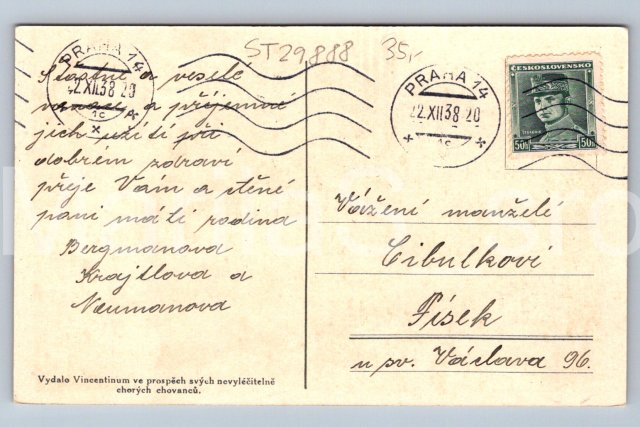 ST29,888 35,-
PRAHA 14
22.XII.38 20
1c
PRAHA 14
22.XII.38 20
1c
ČESKOSLOVENSKO
ŠTEFÁNIK
50h 50h
Šťastné a veselé
vánoce a příjemné
jich užití při
dobrém zdraví
přeje Vám a ctěné
paní máti rodina
Bergmanova
Krajtlova a
Neumanova
Vážení manželé
Cibulkovi
Písek
u sv. Václava 96.
Vydalo Vincentinum ve prospěch svých nevyléčitelně
chorých chovanců.